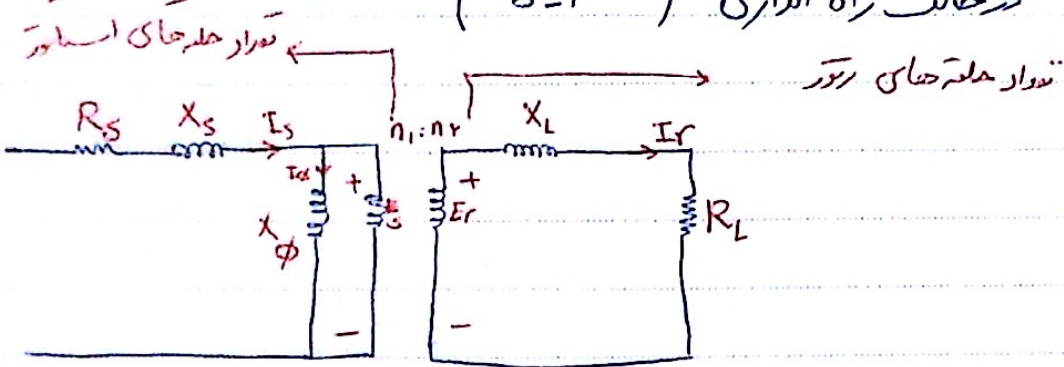 درحالت راه اندازی (
تعداد حلقه های استاتور
تعداد حلقه های رتور
Rs Xs Is n1:n2 XL Ir
Iφ + + Er RL
Xφ
− −